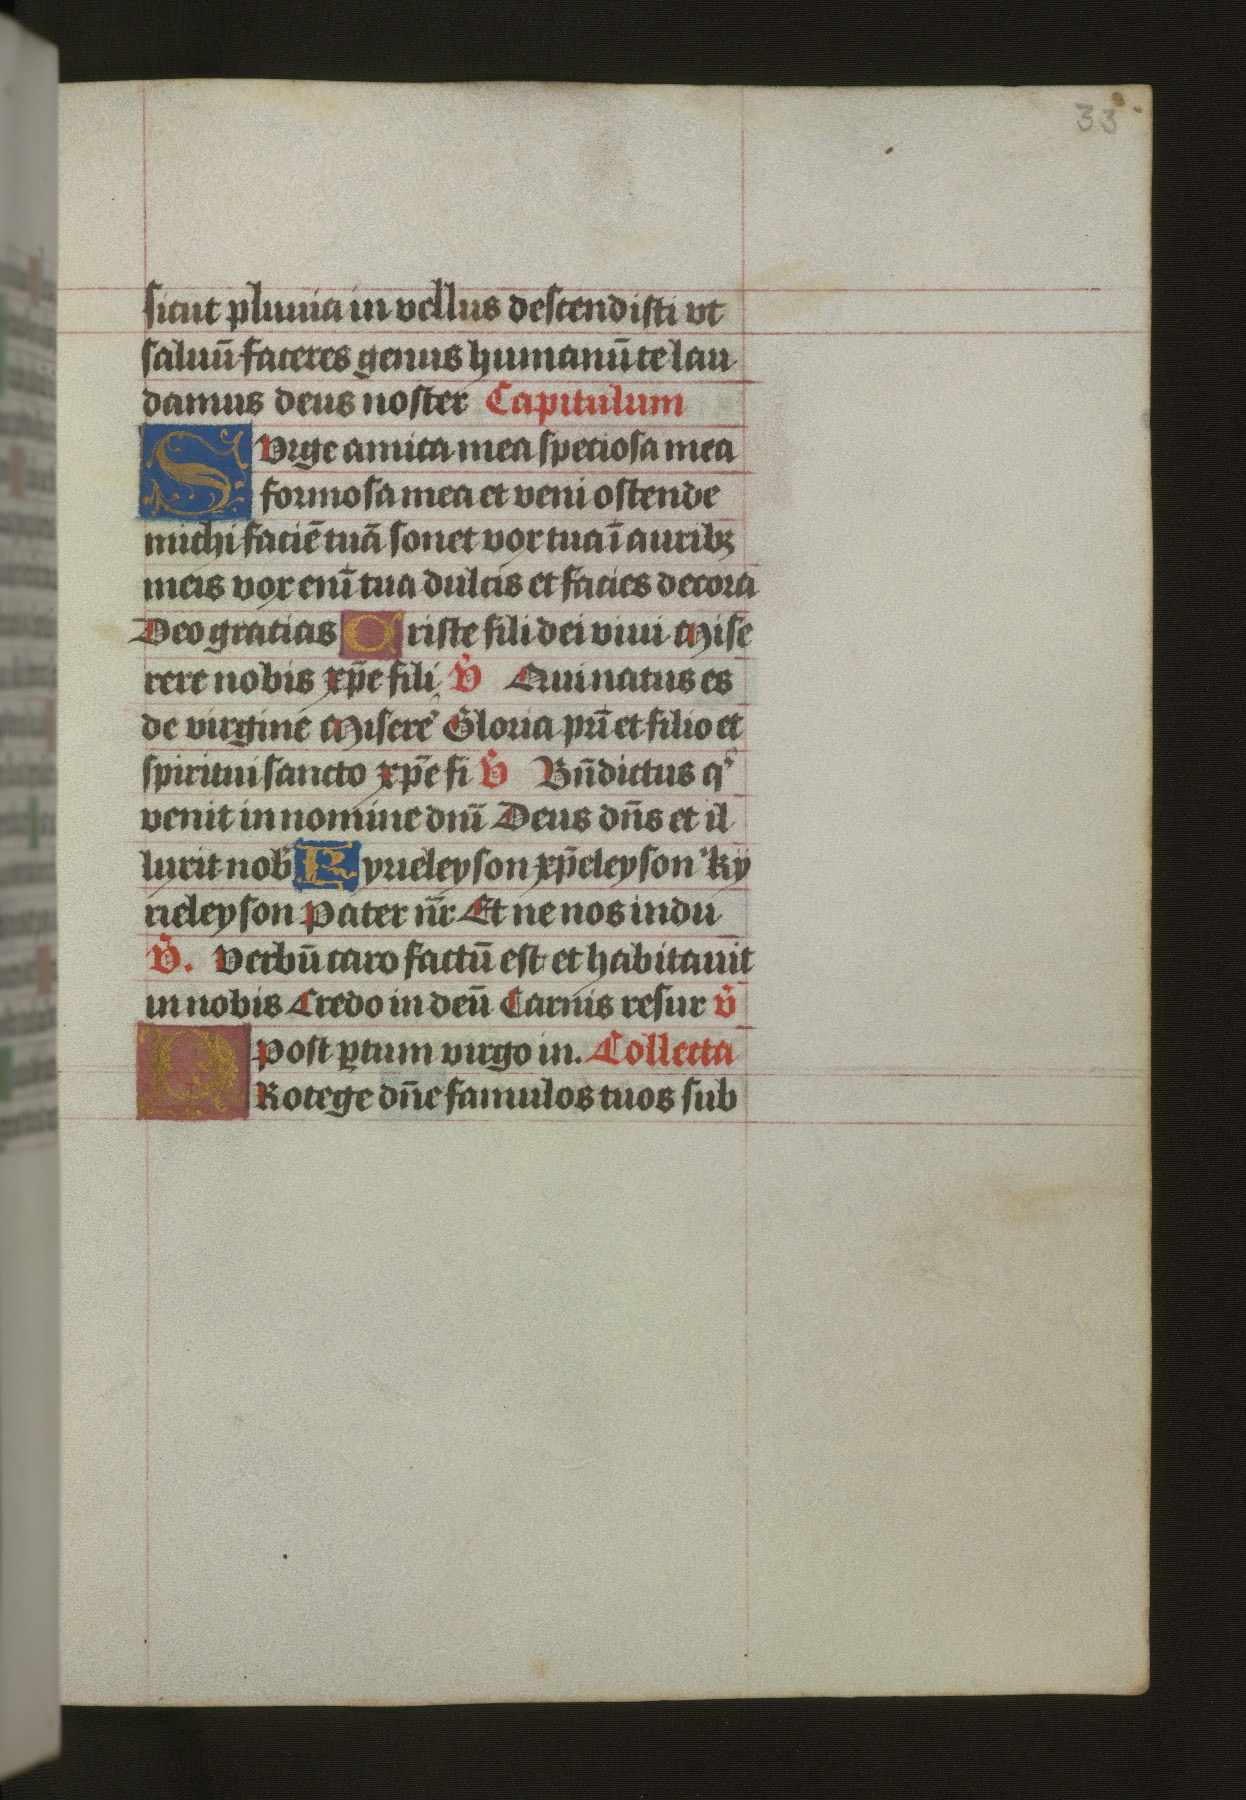 33
sicut pluuia in vellus descendisti vt
saluū faceres genus humanū te lau
damus deus noster Capitulum
SVrge amica mea speciosa mea
formosa mea et veni ostende
michi faciē tuā sonet vox tua ī auribꝫ
meis vox enī tua dulcis et facies decora
Deo gratias Criste fili dei viui Mise
rere nobis xp̄e fili V̊ Qui natus es
de virgine Miserēˀ Gloria pr̄i et filio et
spiritui sancto xp̄e fi V̊ Bn̄dictus qⁱ
venit in nomine dnī Deus dn̄s et il
luxit nob̄ Kyrieleyson xp̄eleyson Ky
rieleyson Pater nr̄ Et ne nos indu
V̊. Verbū caro factū est et habitauit
in nobis Credo in deū Carnis resur V̊
Post ꝑtum virgo in. Collecta
PRotege dn̄e famulos tuos sub